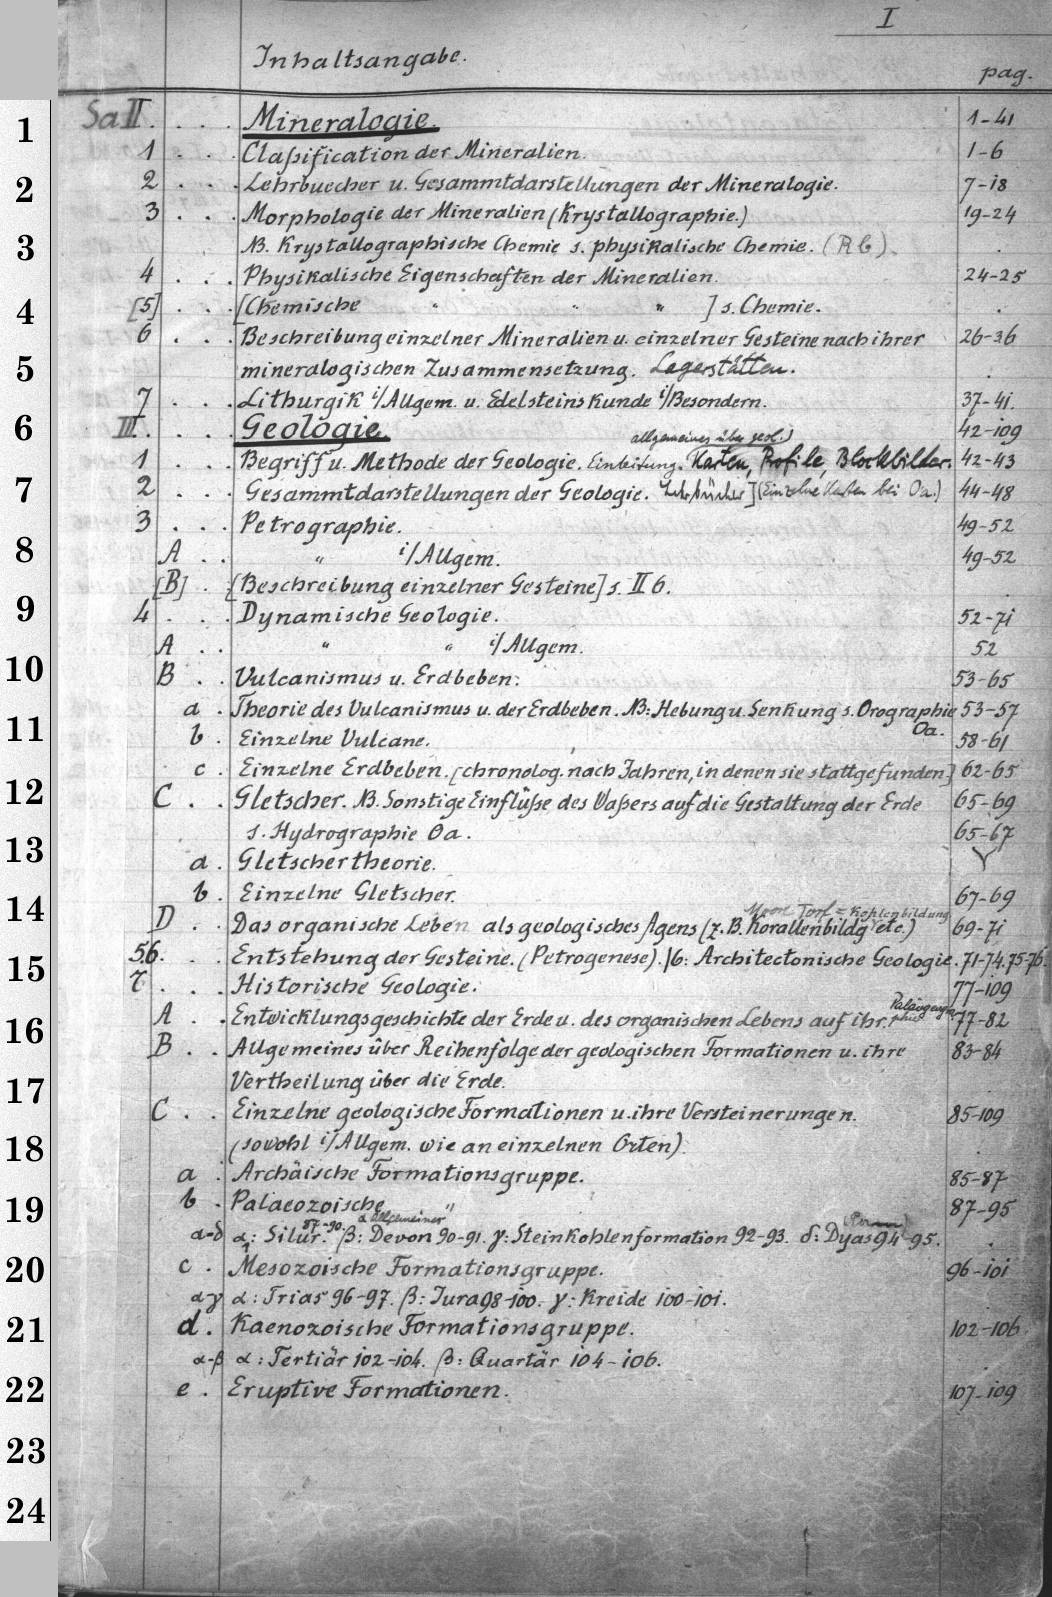 I
Inhaltsangabe.
pag.
1 Sa II. . . . Mineralogie. 1-41
1 . . . Claßification der Mineralien. 1-6
2 2 . . . Lehrbuecher u. Gesammtdarstellungen der Mineralogie. 7-18
3 . . . Morphologie der Mineralien (Krystallographie.) 19-24
3 NB. Krystallographische Chemie s. physikalische Chemie. (Rb).
4 . . . Physikalische Eigenschaften der Mineralien. 24-25
4 [5] . . . [Chemische " " " ] s. Chemie.
6 . . . Beschreibung einzelner Mineralien u. einzelner Gesteine nach ihrer 26-36
5 mineralogischen Zusammensetzung. Lagerstätten.
7 . . . Lithurgik i/Allgem. u. Edelsteinskunde i/Besondern. 37-41.
6 III. . . . Geologie. 42-109
allgemeines über geol.)
1 . . . Begriff u. Methode der Geologie. Einleitung. Karten, Profile, Blockbilder. 42-43
7 2 . . . Gesammtdarstellungen der Geologie. Lehrbücher] (Einzelne Karten bei Oa.) 44-48
3 . . . Petrographie. 49-52
8 A . . " i/Allgem. 49-52
[B] . [Beschreibung einzelner Gesteine] s. II 6.
9 4 . . . Dynamische Geologie. 52-71
A . . " " i/Allgem. 52
10 B . . Vulcanismus u. Erdbeben: 53-65
a . Theorie des Vulcanismus u. der Erdbeben. NB: Hebung u. Senkung s. Orographie 53-57
Oa.
11 b . Einzelne Vulcane. 58-61
c . Einzelne Erdbeben. [chronolog. nach Jahren, in denen sie stattgefunden] 62-65
12 C . . Gletscher. NB. Sonstige Einflüße des Waßers auf die Gestaltung der Erde 65-69
s. Hydrographie Oa. 65-67
13 a . Gletschertheorie.
b . Einzelne Gletscher. 67-69
Moor Torf = Kohlenbildung
14 D . . Das organische Leben als geologisches Agens (z. B. Korallenbildg etc.) 69-71
5.6. . . Entstehung der Gesteine. (Petrogenese). |6: Architectonische Geologie. 71-74. 75-76.
15 7 . . . Historische Geologie. 77-109
16 A . . Entwicklungsgeschichte der Erde u. des organischen Lebens auf ihr. 77-82
B . . Allgemeines über Reihenfolge der geologischen Formationen u. ihre 83-84
17 Vertheilung über die Erde.
C . . Einzelne geologische Formationen u. ihre Versteinerungen. 85-109
18 (sowohl i/Allgem. wie an einzelnen Orten)
a . Archäische Formationsgruppe. 85-87
19 b . Palaeozoische " 87-95
87-90. α allgemeines (Perm)
α-δ α: Silur. β: Devon 90-91. γ: Steinkohlenformation 92-93. δ: Dyas 94-95.
20 c . Mesozoische Formationsgruppe. 96-101
α-γ α: Trias 96-97. β: Jura 98-100. γ: Kreide 100-101.
21 d . Kaenozoische Formationsgruppe. 102-106
α-β α: Tertiär 102-104. β: Quartär 104-106.
22 e . Eruptive Formationen. 107-109
23
24